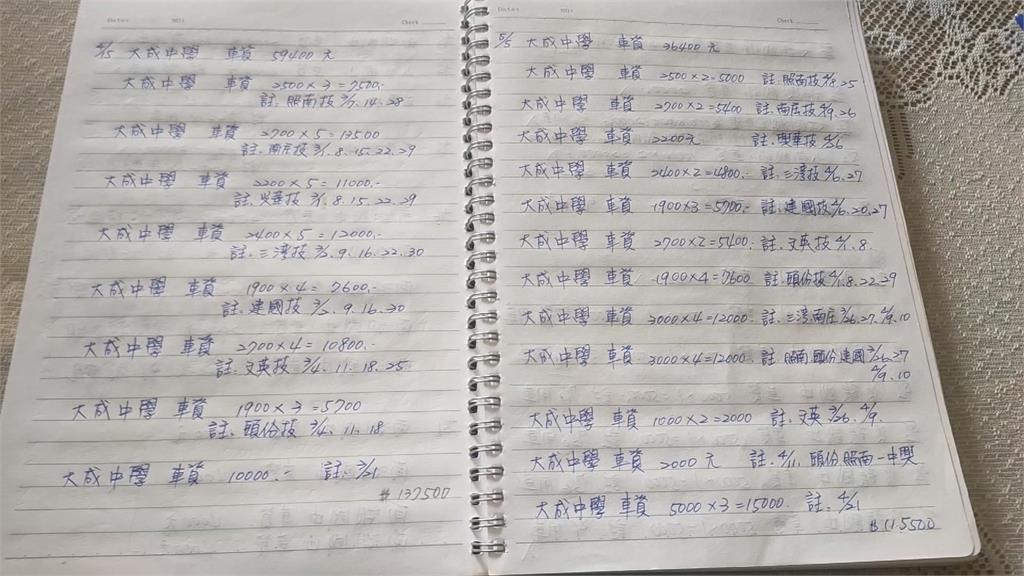 Date: NO:
Check
4/5 大成中學 車資 59400元
大成中學 車資 2500×3=7500.-
註.照南技 3/7.14.28
大成中學 車資 2700×5=13500
註.南庄技 3/1.8.15.22.29
大成中學 車資 2200×5=11000.-
註.興華技 3/1.8.15.22.29
大成中學 車資 2400×5=12000.-
註.三灣技 3/2.9.16.22.30
大成中學 車資 1900×4=7600.-
註.建國技 3/2.9.16.30
大成中學 車資 2700×4=10800.-
註.文英技 3/4.11.18.25
大成中學 車資 1900×3=5700
註.頭份技 3/4.11.18
大成中學 車資 10000.- 註.3/21
# 137500
Date: NO:
Check
5/5 大成中學 車資 36400元
大成中學 車資 2500×2=5000 註.照南技 4/18.25
大成中學 車資 2700×2=5400 註.南庄技 4/19.26
大成中學 車資 2200元 註.興華技 4/26
大成中學 車資 2400×2=4800.- 註.三灣技 4/6.27
大成中學 車資 1900×3=5700.- 註.建國技 4/6.20.27
大成中學 車資 2700×2=5400.- 註.文英技 4/1.8.
大成中學 車資 1900×4=7600 註.頭份技 4/1.8.22.29
大成中學 車資 3000×4=12000.- 註.三灣南庄 3/26.27.4/9.10
大成中學 車資 3000×4=12000.- 註.照南.頭份.建國 3/26.27
4/9.10
大成中學 車資 1000×2=2000 註.文英 3/26.4/9.
大成中學 車資 2000元 註.4/11.頭份.照南-中興
大成中學 車資 5000×3=15000. 註.4/21
# 115500